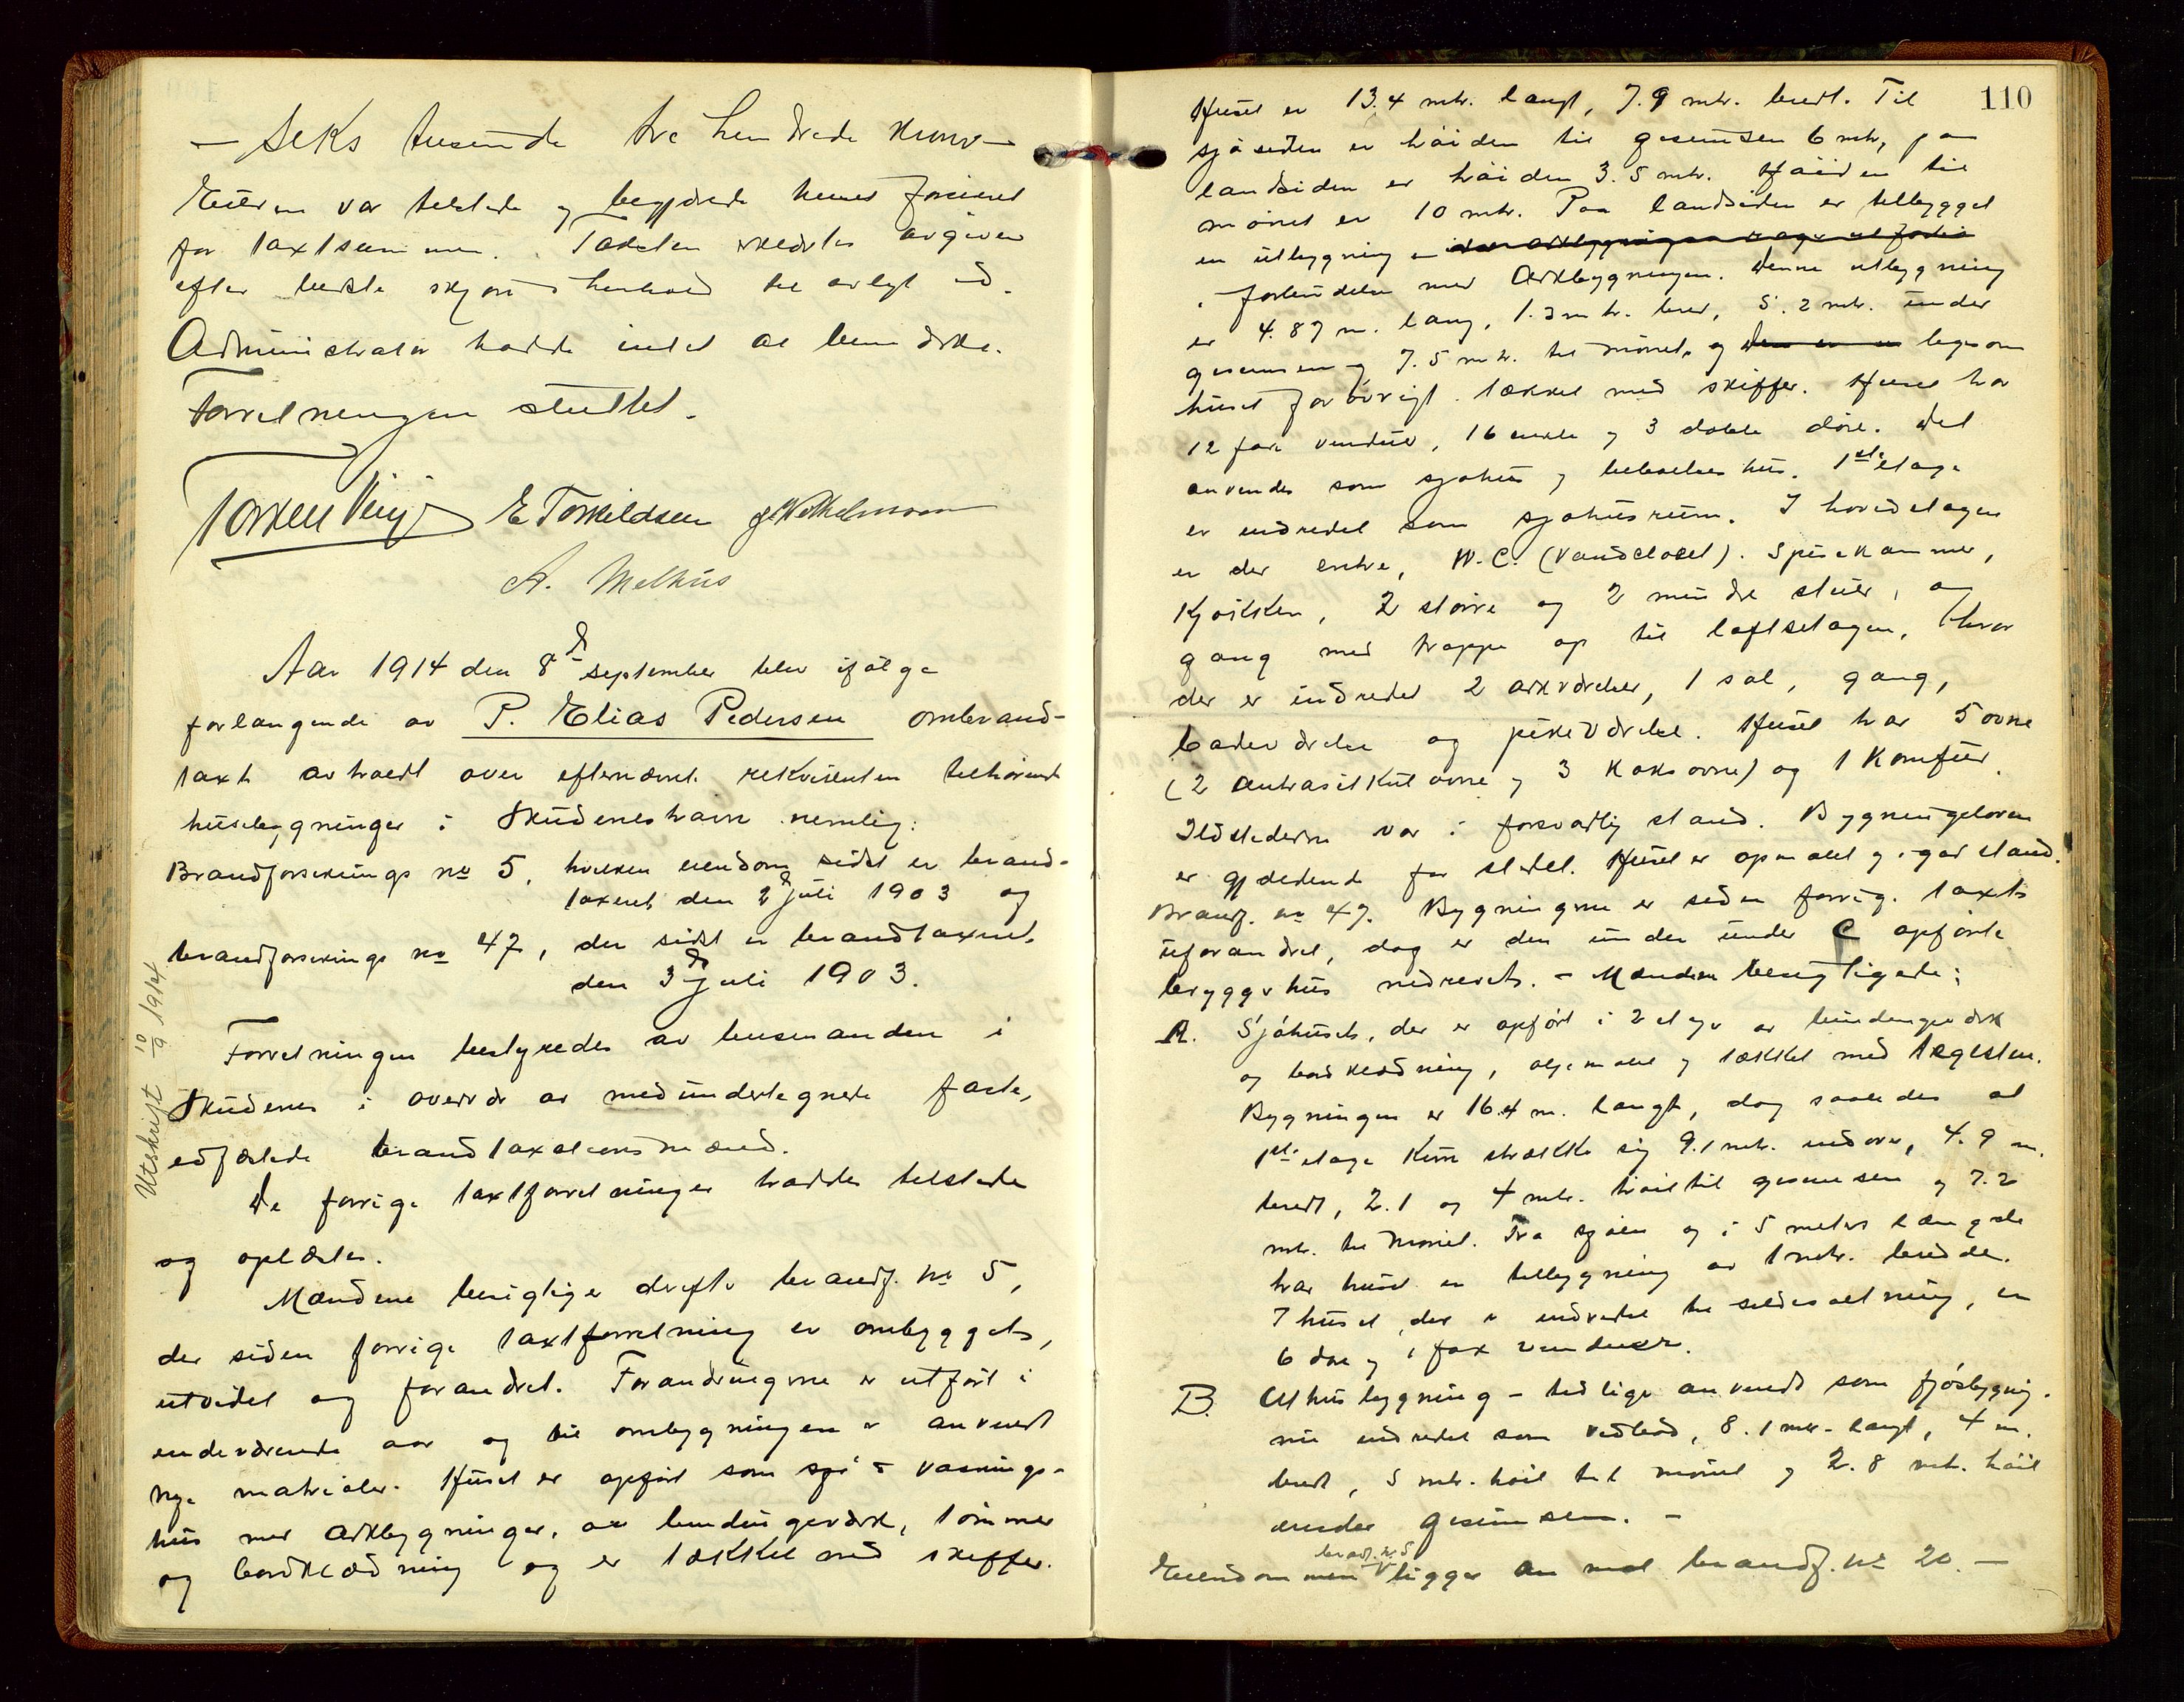 — seks tusinde tre hundrede kroner —
Eieren var tilstede og begjærede huset forsikret
for taxtsummen. Taksten erklærtes avgiven
efter bedste skjøn i henhold til avlagt ed.
Administrator hadde intet at bemærke.
Forretningen sluttet.
Torkell Vinje E Torkildsen
A. Melhus
Aar 1914 den 8de september blev ifølge
forlangende av P. Elias Pedersen ombrand-
taxt avholdt over efternævnte rekvirenten tilhørende
husebygninger i Skudeneshavn nemlig:
Brandforsikrings no 5, hvilken eiendom sidst er brand-
taxeret den 2d juli 1903 og
brandforsikrings no 47, der sidst er brandtaxeret
den 3d juli 1903.
Utskrift 10/9 1914
Forretningen bestyredes av lensmanden i
Skudenes i overvær av medundertegnede faste,
edfæstede brandtaxationsmænd.
De forrige taxtforretninger hadde tilstede
og oplæstes.
Mændene besigtiget derefter brandf. no 5,
der siden forrige taxtforretning er ombygget,
utvidet og forandret. Forandringerne er utført i
indeværende aar og til ombygningen er anvendt
nye materialer. Huset er opført som sjø & vaanings-
hus med arkbygninger, av bindingsverk, tømmer
og bordklædning og er tækket med skiffer.
110
Huset er 13.4 mtr. langt, 7.9 mtr. bredt. Til
sjøsiden er høiden til gesimsen 6 mtr, paa
landsiden er høiden 3.5 mtr. Høiden til
mønet er 10 mtr. Paa landsiden er tilbygget
en utbygning
i forbindelse med Arkbygningen. Denne utbygning
er 4.87 m. lang, 1.3 mtr. bred, 5.2 mtr. under
gesimsen og 7.5 mtr. til mønet, og den er ligesom
huset forøvrigt tækket med skiffer. Huset har
12 fag vinduer, 16 enkle og 3 doble døre. Det
anvendes som sjøhus og beboelseshus. 1ste etage
er indredet som sjøhusrum. I hovedetagen
er der entre, W.C. (vandcloset). Spisekammer,
Kjøkken, 2 større og 2 mindre stuer, og
gang med trappe op til loftsetagen, hvor
der er indredet 2 arkværelser, 1 sal, gang,
badeværelse og pikeværelse. Huset har 5 ovne
(2 antrasitkulovne og 3 koksovne) og 1 Komfur.
Ildstederne var i forsvarlig stand. Bygningsloven
er gjældende for stedet. Huset er opmalt og i god stand.
Brandf. no 47. Bygningerne er siden forrige taxt
uforandret, dog er den under C opførte
bryggerhus nedrevet. – Mændene besigtigede:
A. Sjøhuset, der er opført i 2 etager av bindingsverk
og bordklædning, oljemalt og tækket med tegelsten.
Bygningen er 16.4 m. langt, dog saaledes at
1ste etage kun strækker sig 9.1 mtr. indover, 4.9 m.
bredt, 2.1 og 4 mtr. høit til gesimsen og 7.2
mtr. til mønet. Fra sjøen og i 5 meters længde
har huset en tilbygning av 1 mtr. bredde.
I huset, der er indredet til sildesaltning, er
6 døre og 1 fag vinduer.
B. Uthusbygning – tidligere anvendt som fjøsbygning,
nu indredet som vedbod, 8.1 mtr. langt, 4 m.
bredt, 5 mtr. høit til mønet og 2.8 mtr. høit
under gesimsen. –
brandf. no 5
Eiendommen ligger an mot brandf. no 20. —